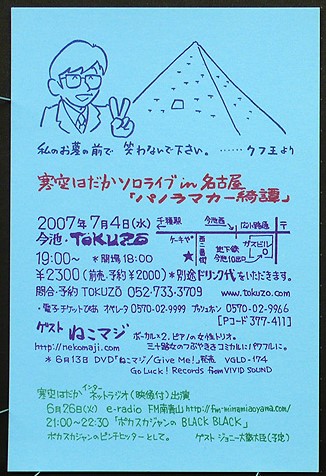 私のお墓の前で 笑わないで下さい。……クフ王より
寒空はだかソロライブ in 名古屋
「パノラマカー綺譚」
2007年7月4日(水)
今池・TOKUZO
19:00〜 *開場18:00
千種駅
今池西
広小路通
〒
ケーキや
西二筋
地下鉄
今池10番出口
ガスビル
¥2300 (前売・予約¥2000) *別途ドリンク代をいただきます。
問合・予約 TOKUZO 052-733-3709 www.tokuzo.com
・電子チケットぴあ オペレータ 0570-02-9999 プッシュホン 0570-02-9966
[Pコード 377-411]
ゲスト ねこマジ ボーカル×2、ピアノの女性トリオ。
http://nekomaji.com 三十路女のつぶやきをコミカルにパワフルに。
*6月13日 DVD「ねこマジ/Give Me!」発売 VGLD-174
Go Luck! Records from VIVID SOUND
寒空はだか インターネットラジオ(映像付)出演
6月26日(火) e-radio FM南青山 http://fm-minamiaoyama.com/
21:00〜22:30 「ポカスカジャンの BLACK BLACK」
ポカスカジャンのピンチヒッターとして。 ゲスト ジョニー大蔵大臣(予定)